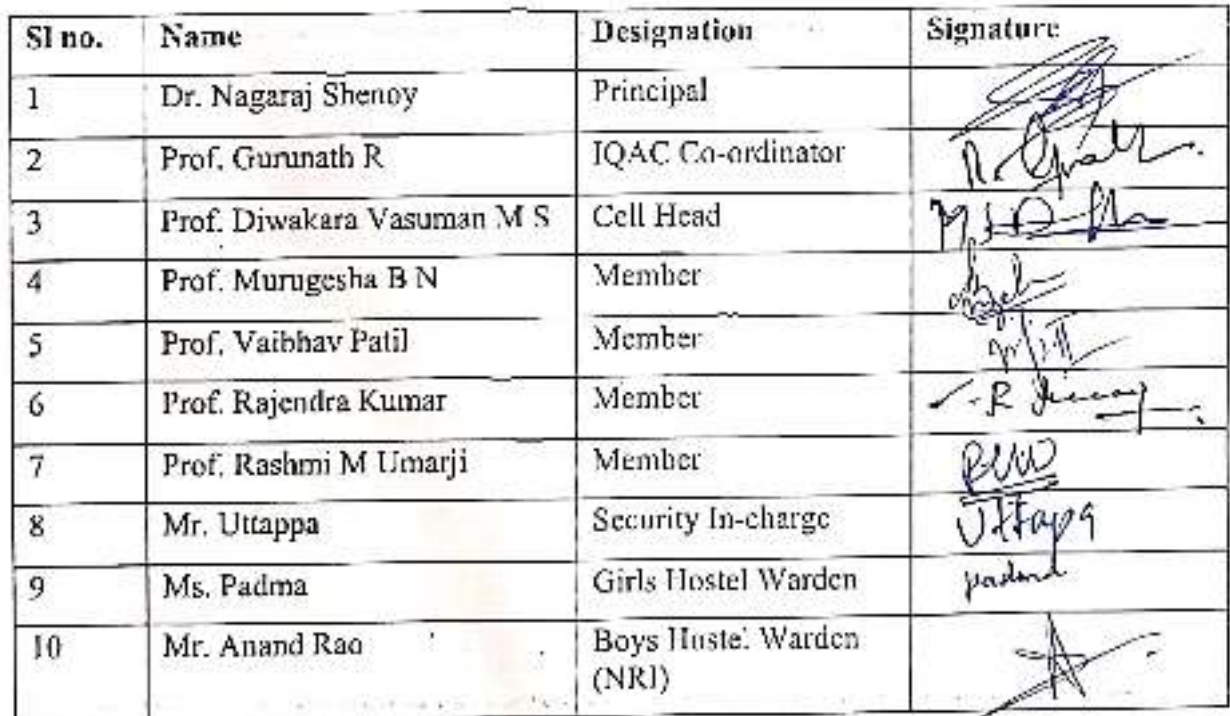 Sl no. Name Designation Signature
1 Dr. Nagaraj Shenoy Principal
2 Prof. Gurunath R IQAC Co-ordinator
3 Prof. Diwakara Vasuman M S Cell Head
4 Prof. Murugesha B N Member
5 Prof. Vaibhav Patil Member
6 Prof. Rajendra Kumar Member
7 Prof. Rashmi M Umarji Member
8 Mr. Uttappa Security In-charge Uttapa
9 Ms. Padma Girls Hostel Warden padma
10 Mr. Anand Rao Boys Hostel Warden
(NRI)